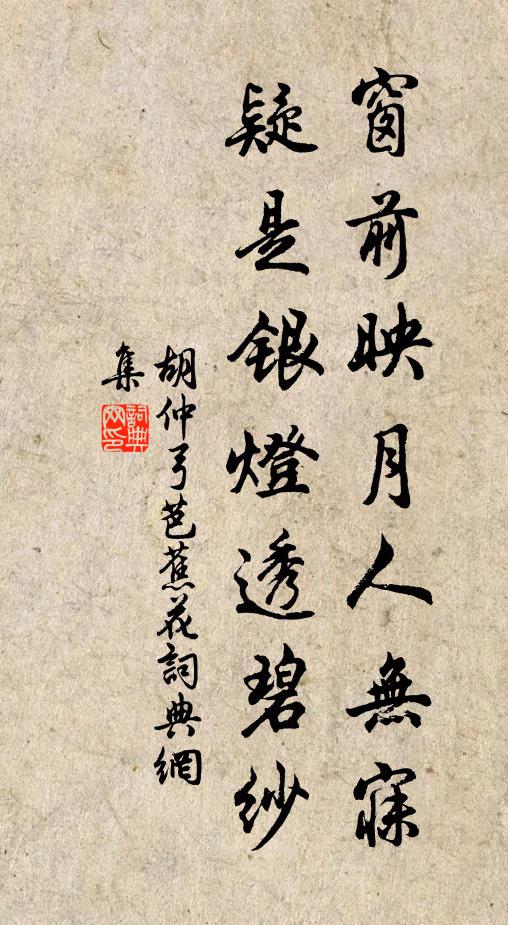 窗前映月人無寐
疑是銀燈透碧紗
胡仲弓芭蕉花詞典網
集
詞典网印